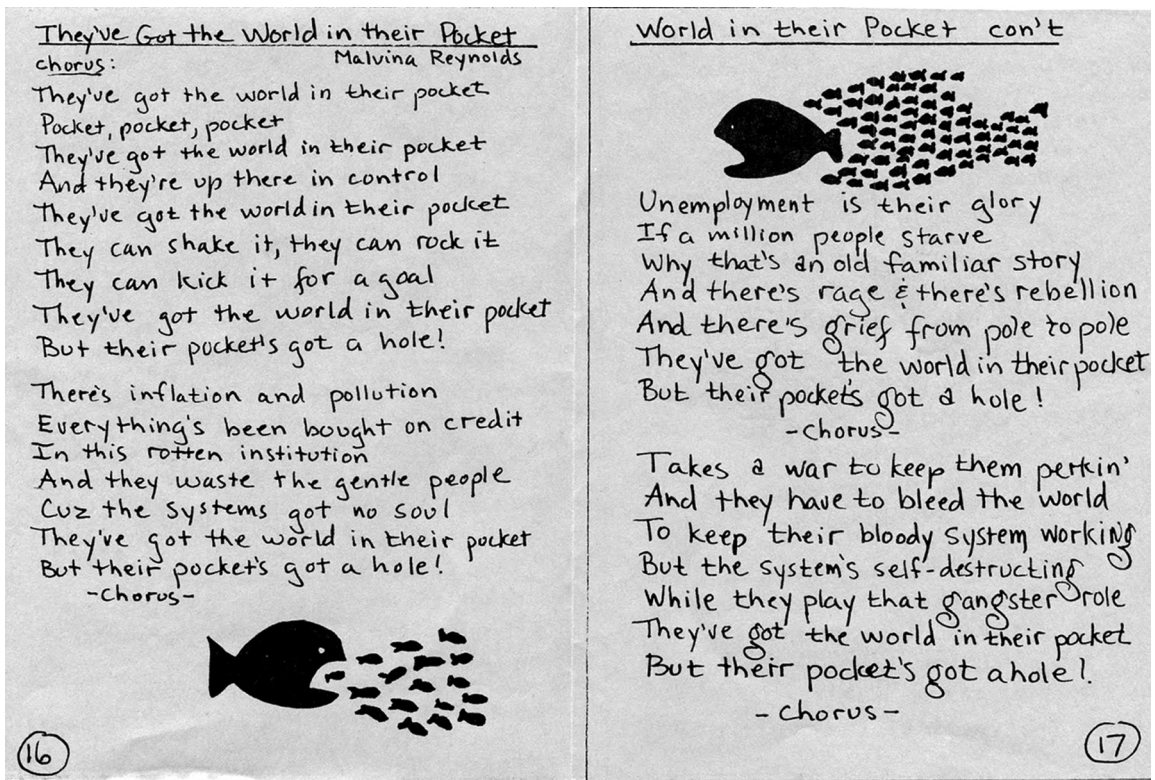 They've Got the World in their Pocket
Malvina Reynolds
chorus:
They've got the world in their pocket
Pocket, pocket, pocket
They've got the world in their pocket
And they're up there in control
They've got the world in their pocket
They can shake it, they can rock it
They can kick it for a goal
They've got the world in their pocket
But their pocket's got a hole!
There's inflation and pollution
Everything's been bought on credit
In this rotten institution
And they waste the gentle people
Cuz the systems got no soul
They've got the world in their pocket
But their pocket's got a hole!
-Chorus-
16
World in their Pocket con't
Unemployment is their glory
If a million people starve
Why that's an old familiar story
And there's rage & there's rebellion
And there's grief from pole to pole
They've got the world in their pocket
But their pocket's got a hole!
-Chorus-
Takes a war to keep them perkin'
And they have to bleed the world
To keep their bloody system working
But the system's self-destructing
While they play that gangster role
They've got the world in their pocket
But their pocket's got a hole!
-Chorus-
17